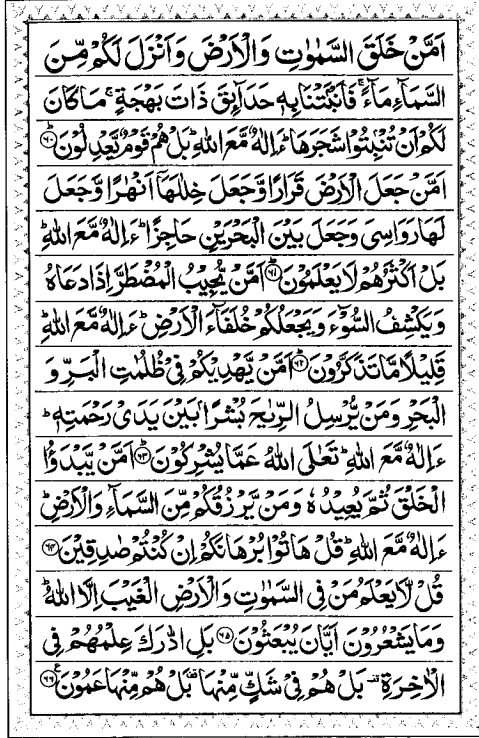 اَمَّنْ خَلَقَ السَّمٰوٰتِ وَالْاَرْضَ وَاَنْزَلَ لَكُمْ مِّنَ
السَّمَآءِ مَآءً ۚ فَاَنْۢبَتْنَا بِهٖ حَدَآئِقَ ذَاتَ بَهْجَةٍ ۚ مَا كَانَ
لَكُمْ اَنْ تُنْۢبِتُوْا شَجَرَهَا ؕ ءَاِلٰهٌ مَّعَ اللّٰهِ ؕ بَلْ هُمْ قَوْمٌ يَّعْدِلُوْنَ ؕ۶۰
اَمَّنْ جَعَلَ الْاَرْضَ قَرَارًا وَّجَعَلَ خِلٰلَهَاۤ اَنْهٰرًا وَّجَعَلَ
لَهَا رَوَاسِىَ وَجَعَلَ بَيْنَ الْبَحْرَيْنِ حَاجِزًا ؕ ءَاِلٰهٌ مَّعَ اللّٰهِ ؕ
بَلْ اَكْثَرُهُمْ لَا يَعْلَمُوْنَ ؕ۶۱ اَمَّنْ يُّجِيْبُ الْمُضْطَرَّ اِذَا دَعَاهُ
وَيَكْشِفُ السُّوْٓءَ وَيَجْعَلُكُمْ خُلَفَآءَ الْاَرْضِ ؕ ءَاِلٰهٌ مَّعَ اللّٰهِ ؕ
قَلِيْلًا مَّا تَذَكَّرُوْنَ ؕ۶۲ اَمَّنْ يَّهْدِيْكُمْ فِىْ ظُلُمٰتِ الْبَرِّ وَ
الْبَحْرِ وَمَنْ يُّرْسِلُ الرِّيٰحَ بُشْرًۢا بَيْنَ يَدَىْ رَحْمَتِهٖ ؕ
ءَاِلٰهٌ مَّعَ اللّٰهِ ؕ تَعٰلَى اللّٰهُ عَمَّا يُشْرِكُوْنَ ؕ۶۳ اَمَّنْ يَّبْدَؤُا
الْخَلْقَ ثُمَّ يُعِيْدُهٗ وَمَنْ يَّرْزُقُكُمْ مِّنَ السَّمَآءِ وَالْاَرْضِ ؕ
ءَاِلٰهٌ مَّعَ اللّٰهِ ؕ قُلْ هَاتُوْا بُرْهَانَكُمْ اِنْ كُنْتُمْ صٰدِقِيْنَ ۶۴
قُلْ لَّا يَعْلَمُ مَنْ فِى السَّمٰوٰتِ وَالْاَرْضِ الْغَيْبَ اِلَّا اللّٰهُ ؕ
وَمَا يَشْعُرُوْنَ اَيَّانَ يُبْعَثُوْنَ ۶۵ بَلِ ادّٰرَكَ عِلْمُهُمْ فِى
الْاٰخِرَةِ ۫ بَلْ هُمْ فِىْ شَكٍّ مِّنْهَا ۫ بَلْ هُمْ مِّنْهَا عَمُوْنَ ۶۶ ع